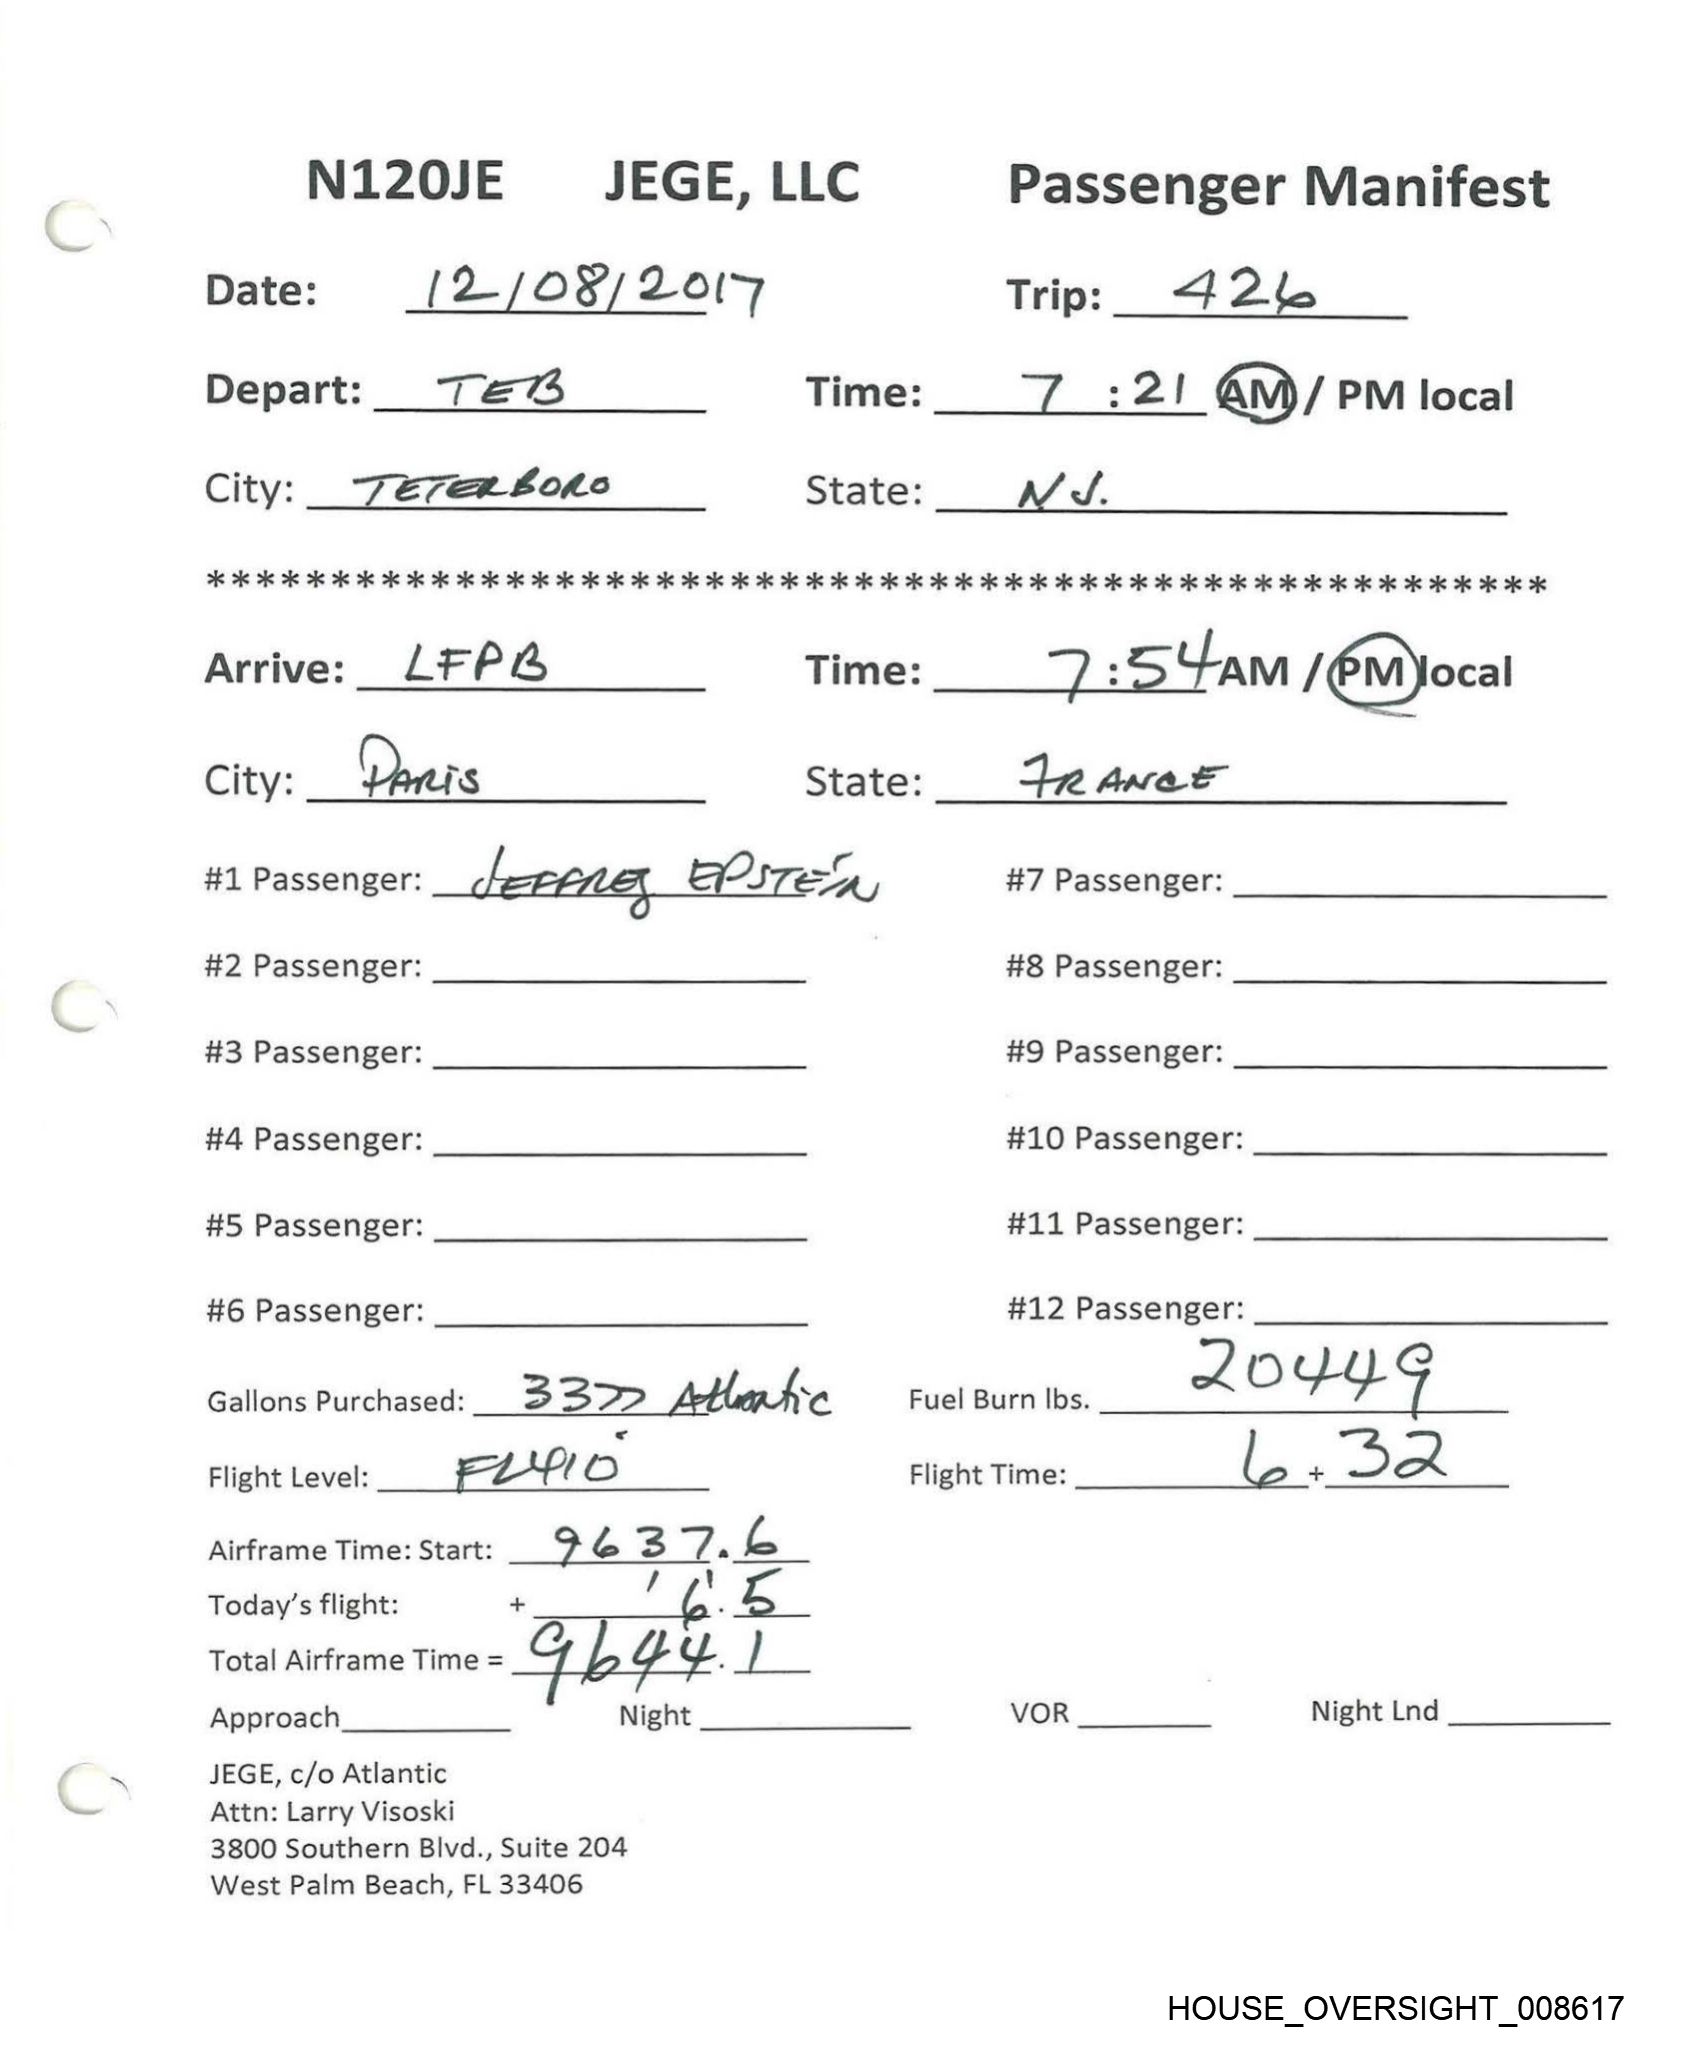 N120JE JEGE, LLC Passenger Manifest
Date: 12/08/2017 Trip: 426
Depart: TEB Time: 7:21 AM / PM local
City: TETERBORO State: NJ.
******************************************************
Arrive: LFPB Time: 7:54 AM / PM local
City: PARIS State: FRANCE
#1 Passenger: JEFFREY EPSTEIN #7 Passenger:
#2 Passenger: #8 Passenger:
#3 Passenger: #9 Passenger:
#4 Passenger: #10 Passenger:
#5 Passenger: #11 Passenger:
#6 Passenger: #12 Passenger:
Gallons Purchased: 3377 Atlantic Fuel Burn lbs. 20449
Flight Level: FL410 Flight Time: 6 + 32
Airframe Time: Start: 9637.6
Today's flight: + 6.5
Total Airframe Time = 9644.1
Approach Night VOR Night Lnd
JEGE, c/o Atlantic
Attn: Larry Visoski
3800 Southern Blvd., Suite 204
West Palm Beach, FL 33406
HOUSE_OVERSIGHT_008617